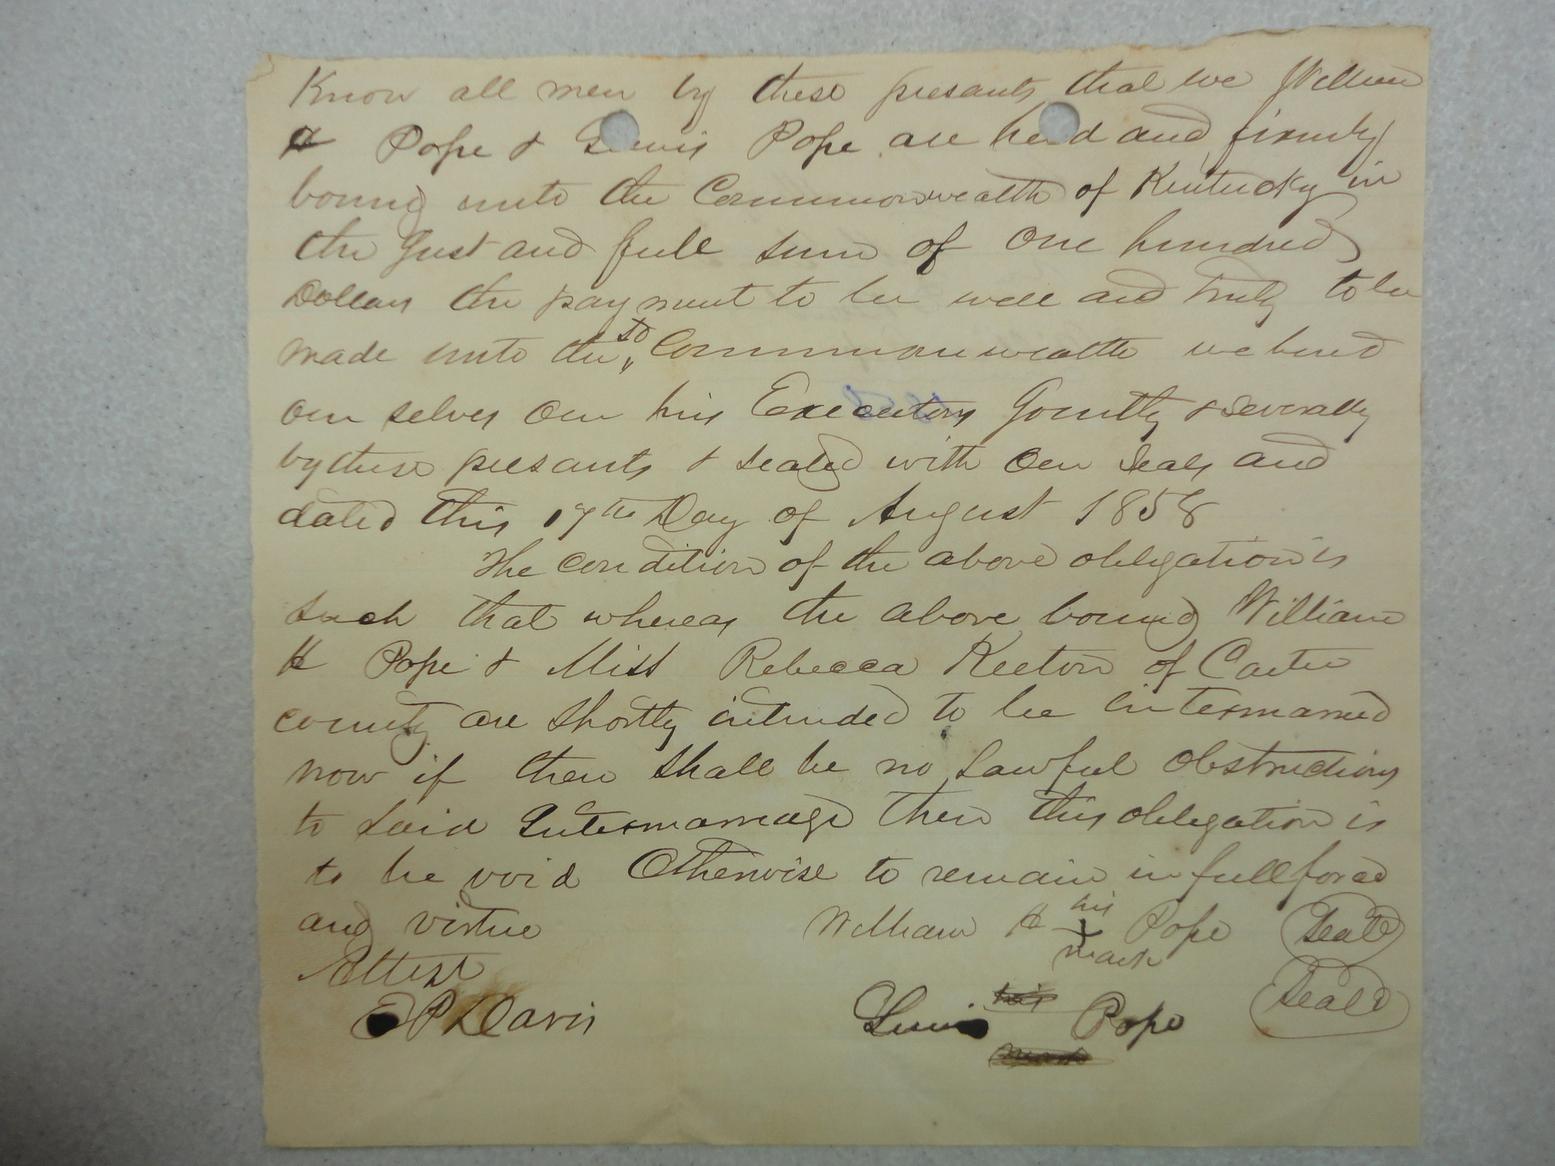 Know all men by these presants that we William
H Pope & Lewis Pope are held and firmly
bound unto the Commonwealth of Kentucky in
the Just and full sum of One hundred
Dollars the payment to be well and truly to be
made unto the sd Commonwealth we bind
our selves our hirs Executors Jointly & severally
by these presants & sealed with our seals and
dated this 17th Day of August 1858
The condition of the above obligation is
such that whereas the above bound William
H Pope & Miss Rebecca Keeton of Carter
county are shortly intended to be intermarried
now if there shall be no Lawful obstructions
to said Intermarriage then this obligation is
to be void Otherwise to remain in full force
and virtue
William H his mark Pope Seald
Attest
E P Davis
Lewis Pope Seald